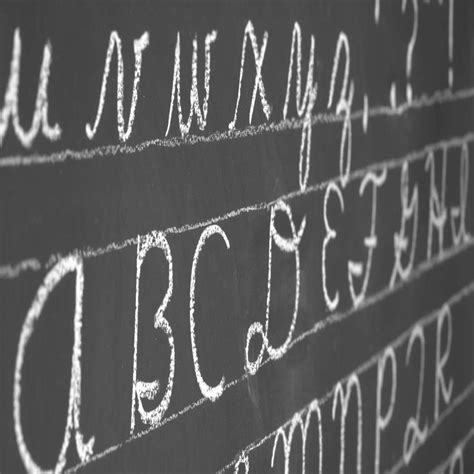 u v w x y z , ? !
A B C D E F G H I
M N P Q R